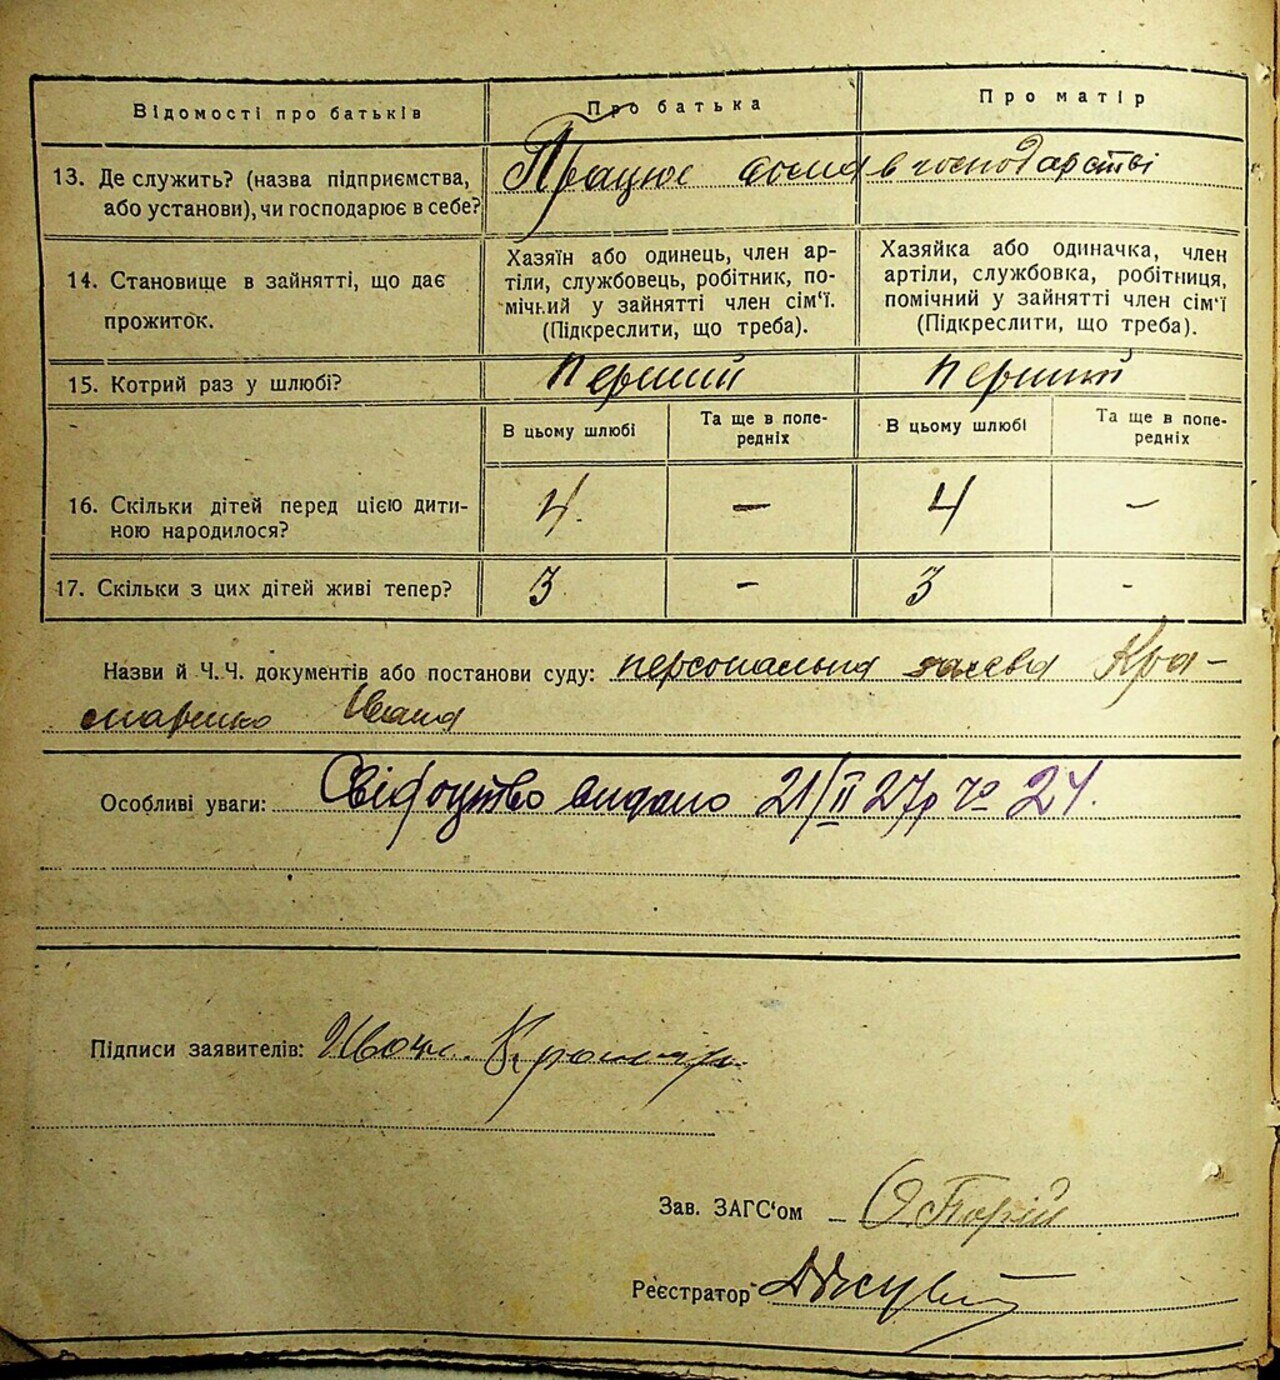 Відомості про батьків
Про батька
Про матір
13. Де служить? (назва підприємства, або установи), чи господарює в себе?
Працює в господарстві
14. Становище в зайнятті, що дає прожиток.
Хазяїн або одинець, член ар-
тіли, службовець, робітник, по-
мічний у зайнятті член сім'ї.
(Підкреслити, що треба).
Хазяйка або одиначка, член
артіли, службовка, робітниця,
помічний у зайнятті член сім'ї
(Підкреслити, що треба).
15. Котрий раз у шлюбі?
Перший
Перший
В цьому шлюбі
Та ще в попе-
редніх
В цьому шлюбі
Та ще в попе-
редніх
16. Скільки дітей перед цією дити-
ною народилося?
4. — 4 —
17. Скільки з цих дітей живі тепер?
3 - 3 -
Назви й Ч.Ч. документів або постанови суду: персональна заява Кра-
маренко Івана
Особливі уваги: Свідоцтво видано 21/II 27р № 24.
Підписи заявителів: Иван Крамар
Зав. ЗАГС'ом
Реєстратор